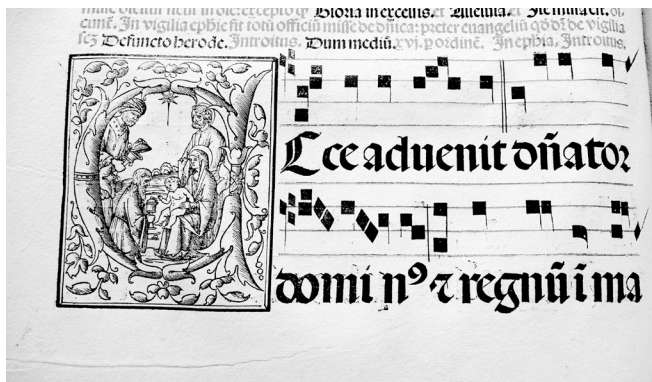 Gloria in excelsis. et Alleluia. et Ite missa est.
cunt̄. In vigilia ephie fit totū officiū misse de dñica: preter euangeliū qď dr̄ de vigilia
scz Defuncto herode. Introitus. Dum mediū. xvi. p ordinē. In ephia. Introitus.
Ecce aduenit dñator
domi nꝰ ⁊ regnū ī ma